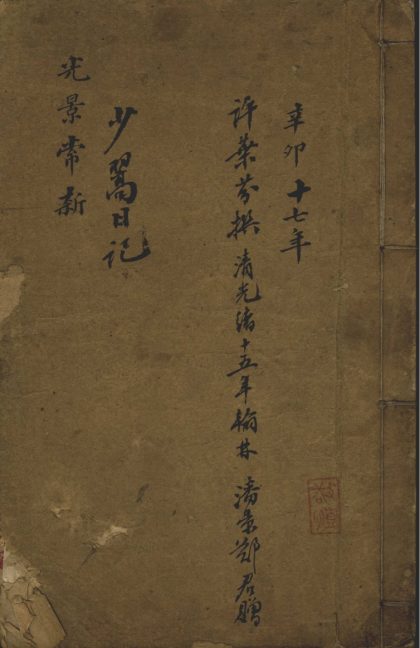 辛卯 十七年
许葉芬撰 清光绪十五年翰林 潘景鄭君贈
少翯日记
光景常新